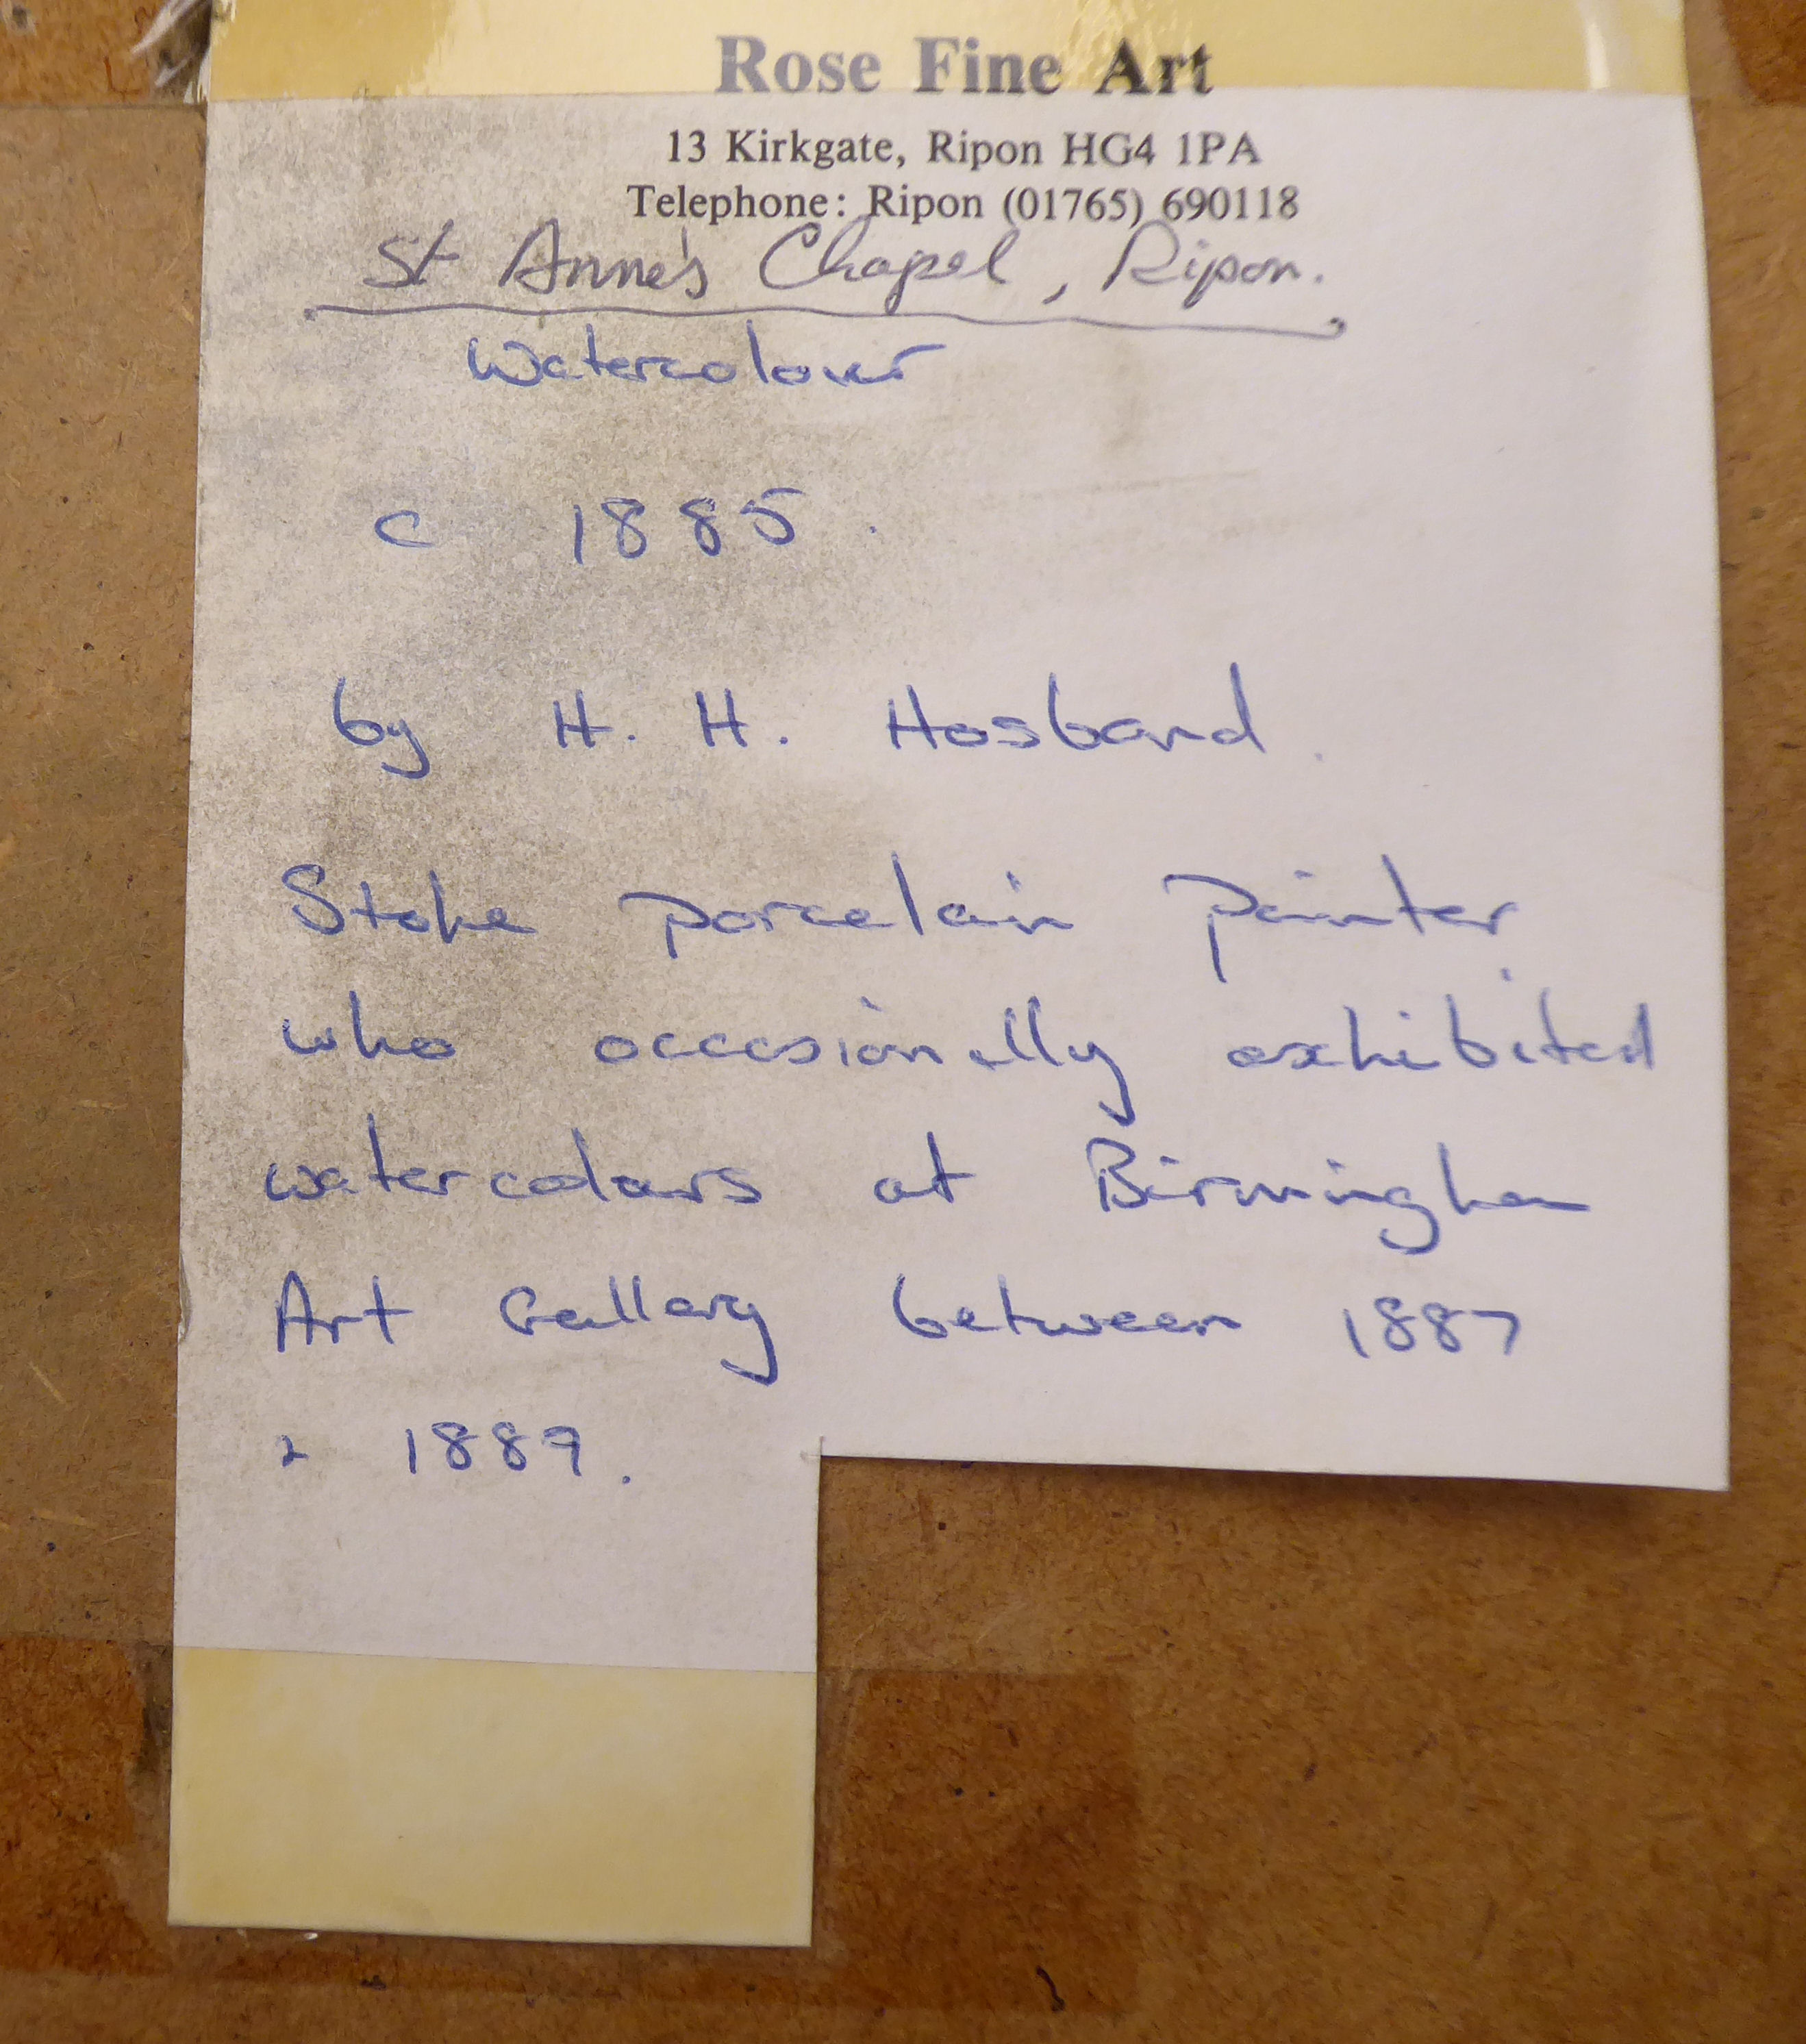 Rose Fine Art
13 Kirkgate, Ripon HG4 1PA
Telephone: Ripon (01765) 690118
St Anne's Chapel, Ripon.
Watercolour
c 1885.
by H. H. Hosband.
Stoke porcelain painter
who occasionally exhibited
watercolours at Birmingham
Art Gallery between 1887
& 1889.